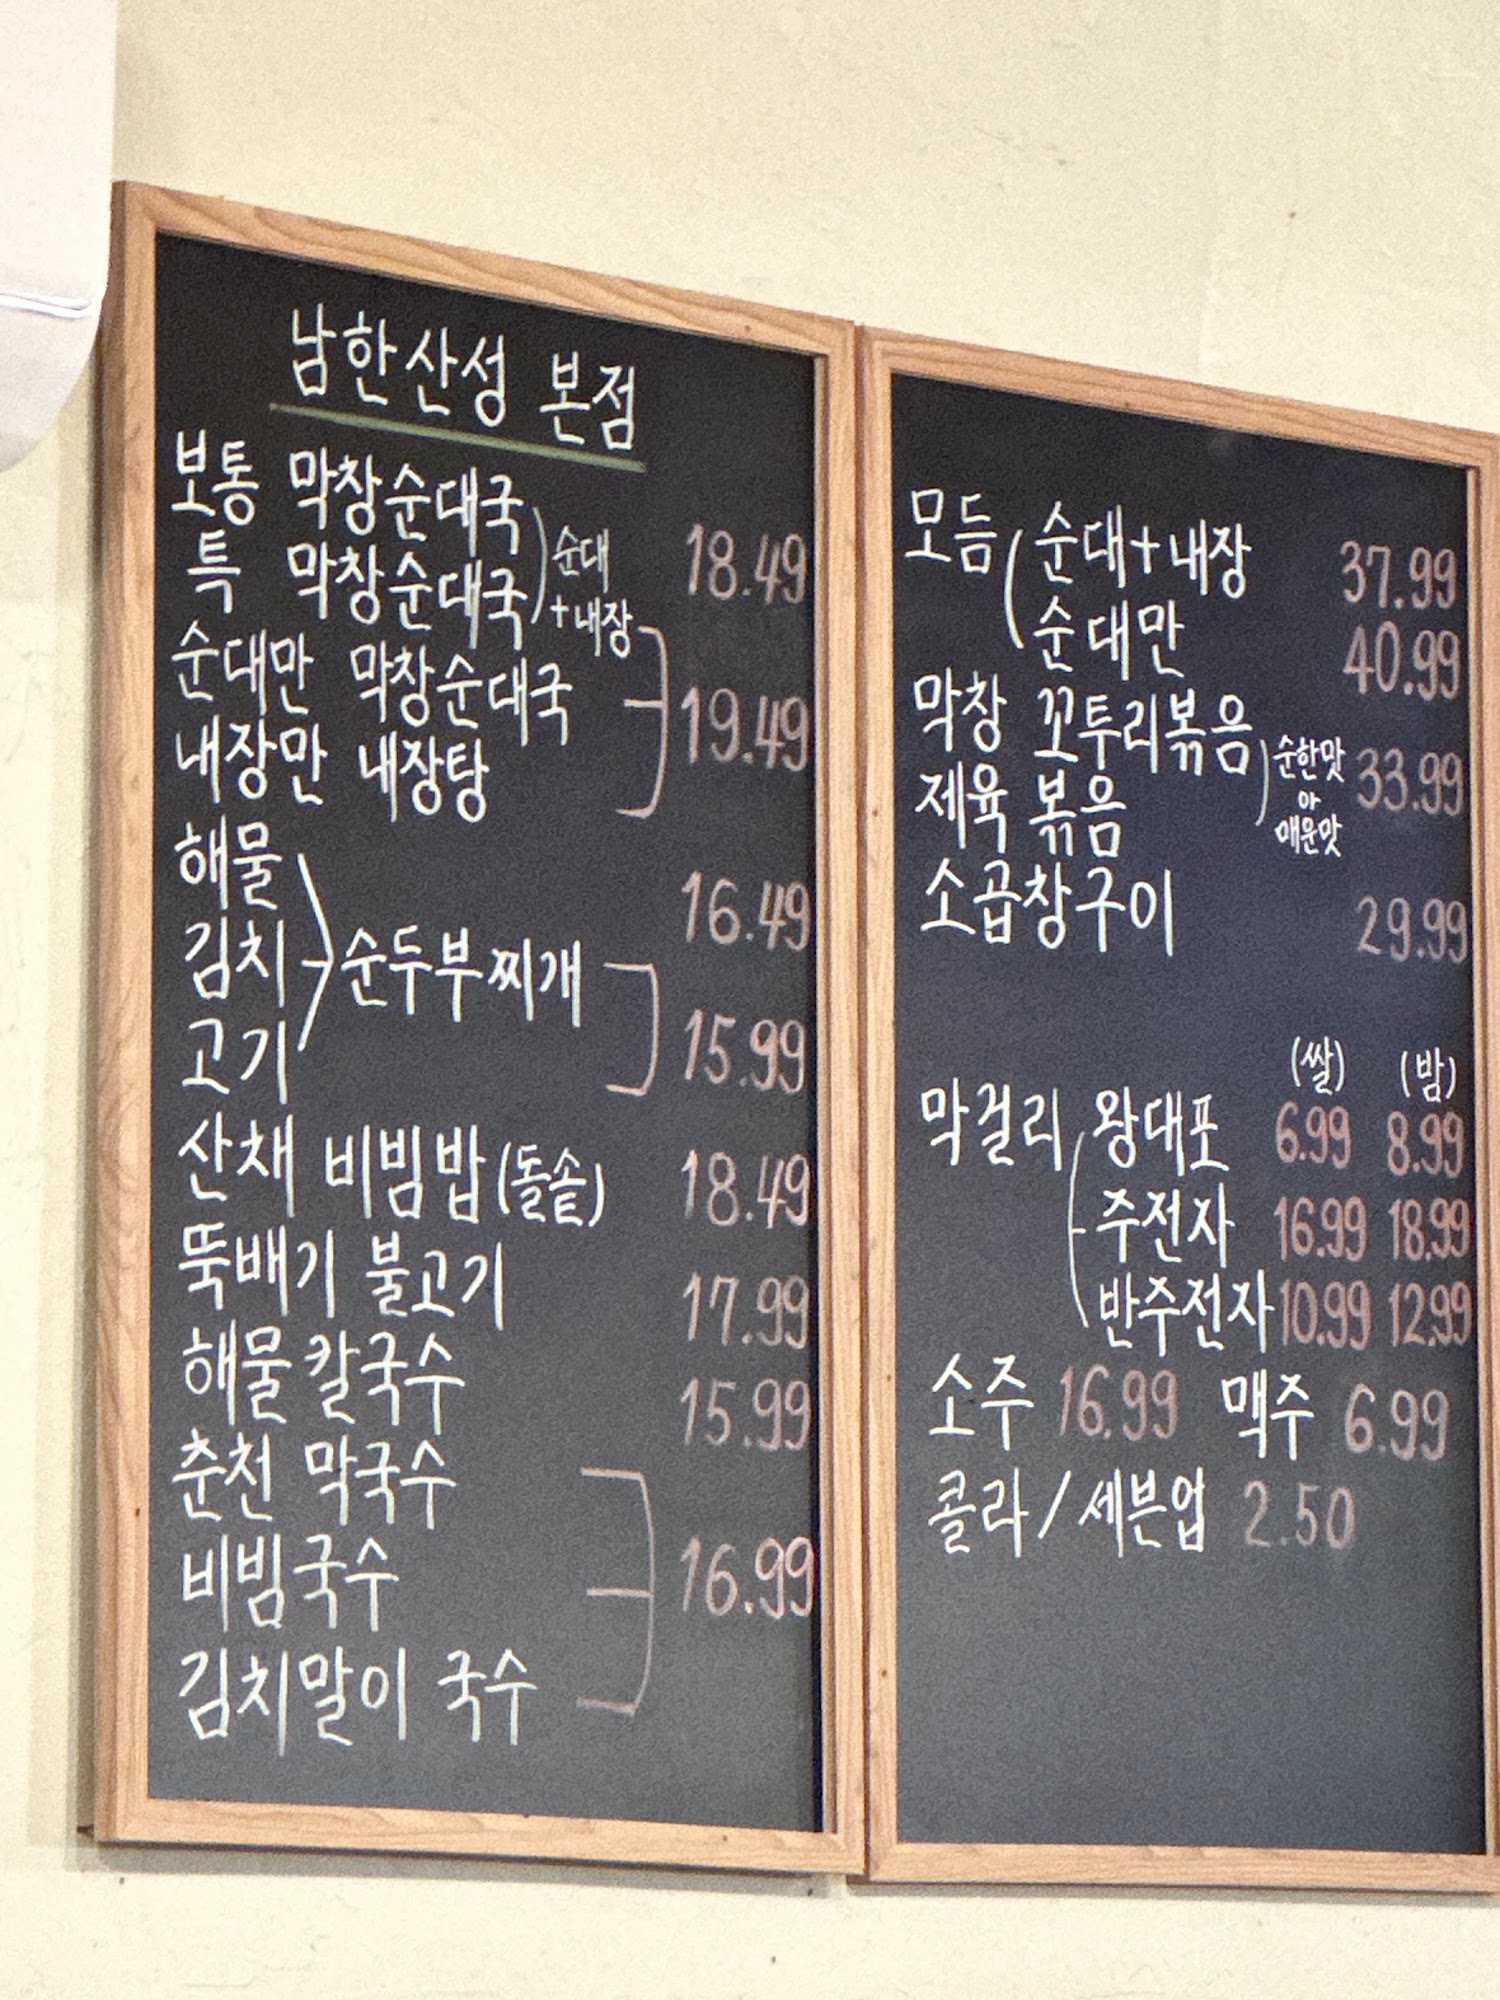 남한산성 본점
보통 막창순대국
특 막창순대국
순대
+내장
18.49
순대만 막창순대국
내장만 내장탕
19.49
해물
김치
고기
순두부찌개
16.49
15.99
산채 비빔밥(돌솥) 18.49
뚝배기 불고기 17.99
해물칼국수 15.99
춘천 막국수
비빔국수
김치말이 국수
16.99
모듬(순대+내장 37.99
순대만 40.99
막창 꼬투리볶음
제육 볶음
순한맛
or
매운맛
33.99
소곱창구이 29.99
(쌀) (밤)
막걸리 왕대포 6.99 8.99
주전자 16.99 18.99
반주전자 10.99 12.99
소주 16.99 맥주 6.99
콜라/세븐업 2.50